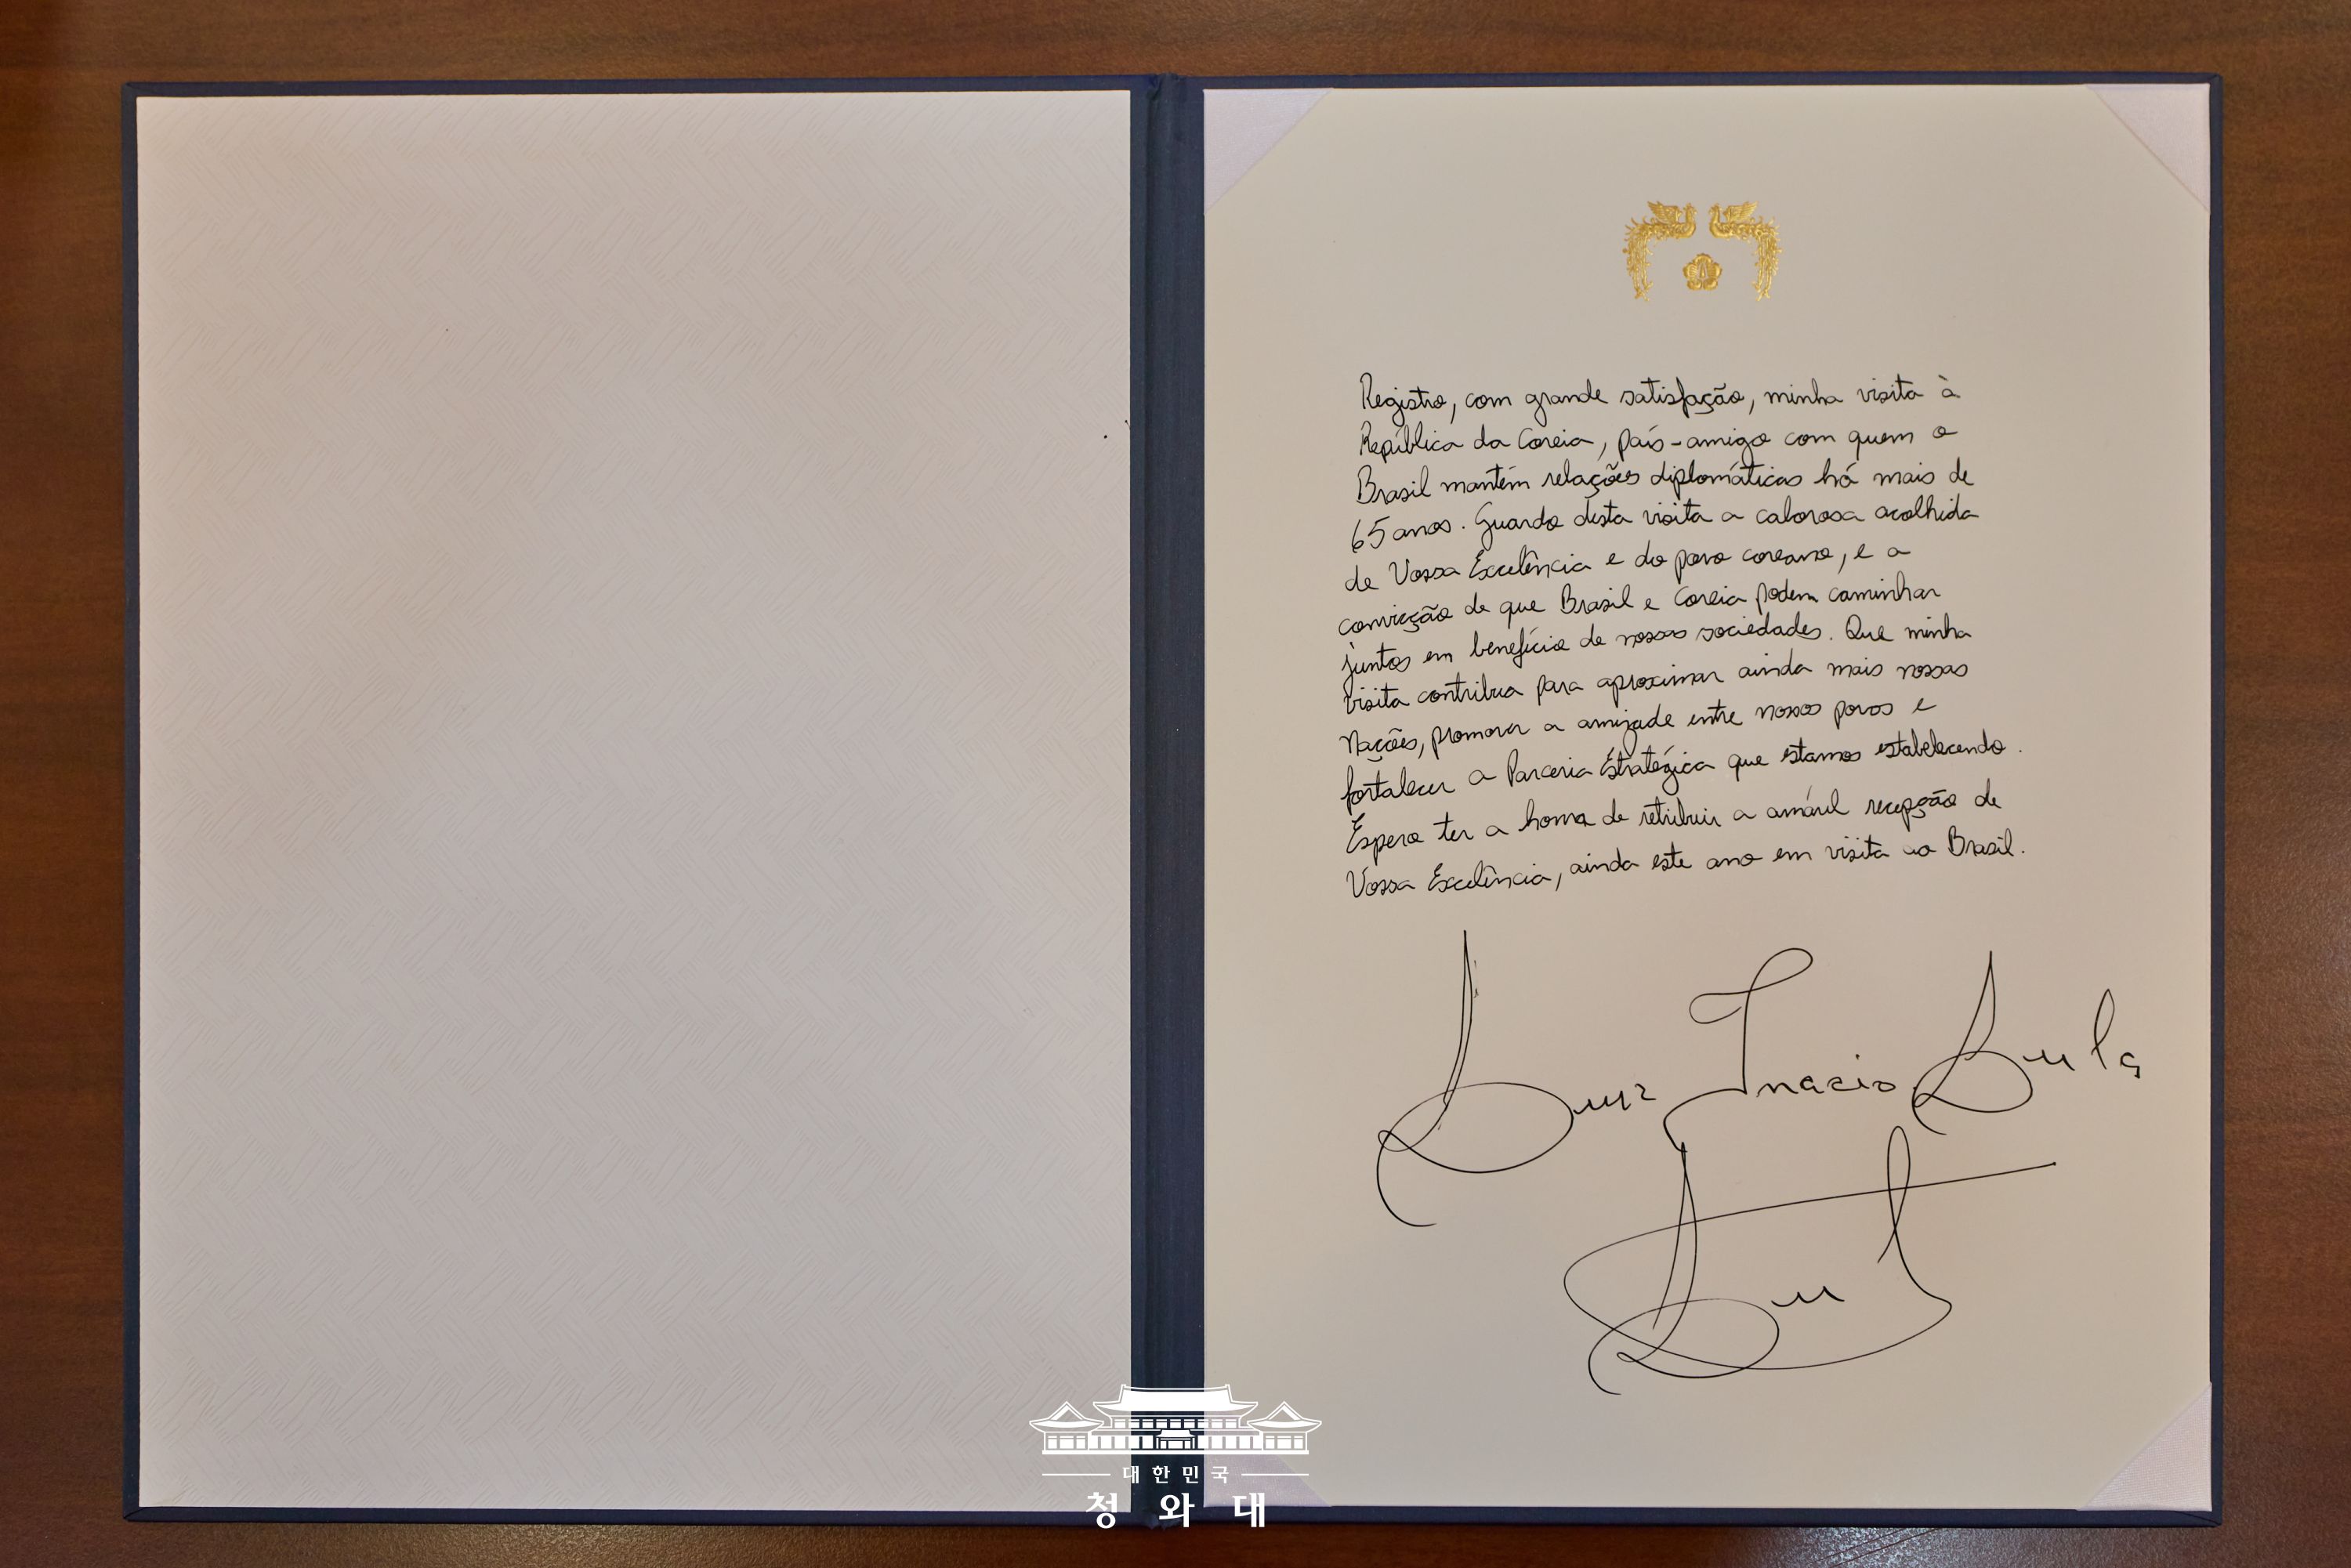 Registro, com grande satisfação, minha visita à
República da Coreia, país-amigo com quem o
Brasil mantém relações diplomáticas há mais de
65 anos. Guardo desta visita a calorosa acolhida
de Vossa Excelência e do povo coreano, e a
convicção de que Brasil e Coreia podem caminhar
juntos em benefício de nossas sociedades. Que minha
visita contribua para aproximar ainda mais nossas
Nações, promover a amizade entre nossos povos e
fortalecer a Parceria Estratégica que estamos estabelecendo.
Espero ter a honra de retribuir a amável recepção de
Vossa Excelência, ainda este ano em visita ao Brasil.
Luiz Inacio Lula
Lul
대한민국
청와대